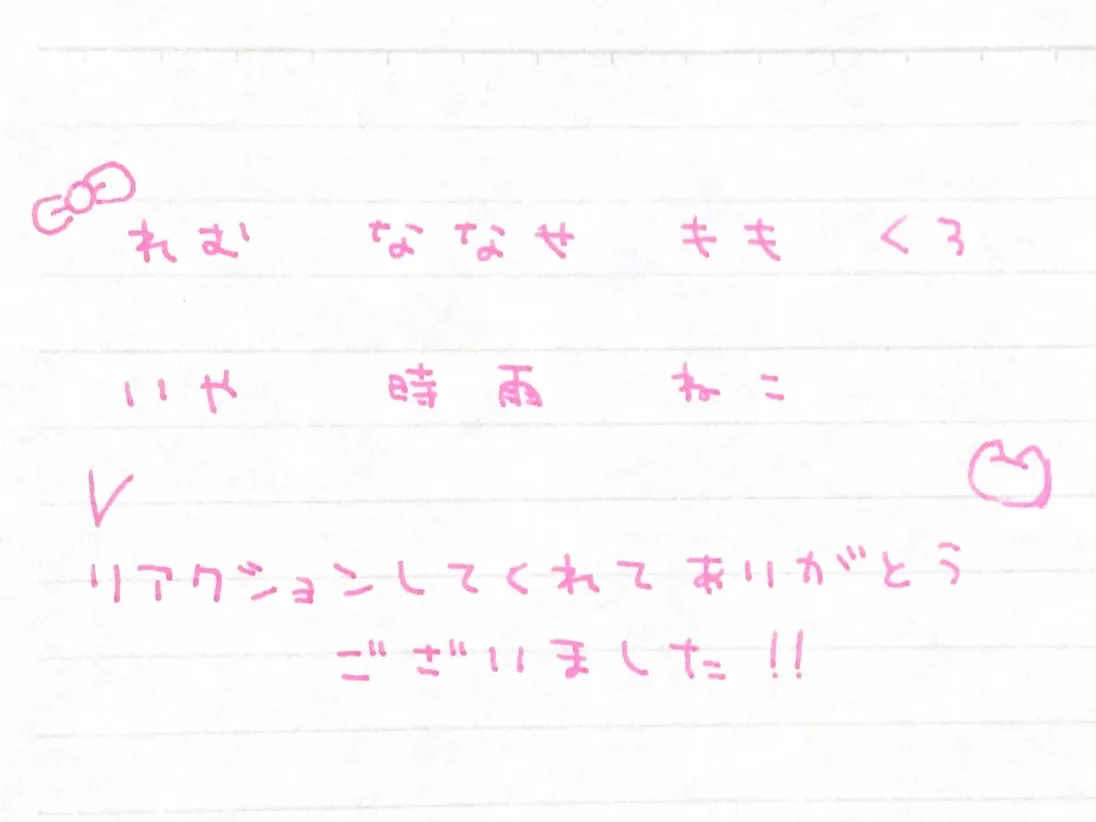 れむ ななせ もも くろ
いや 時雨 ねこ
リアクションしてくれてありがとう
ございました!!